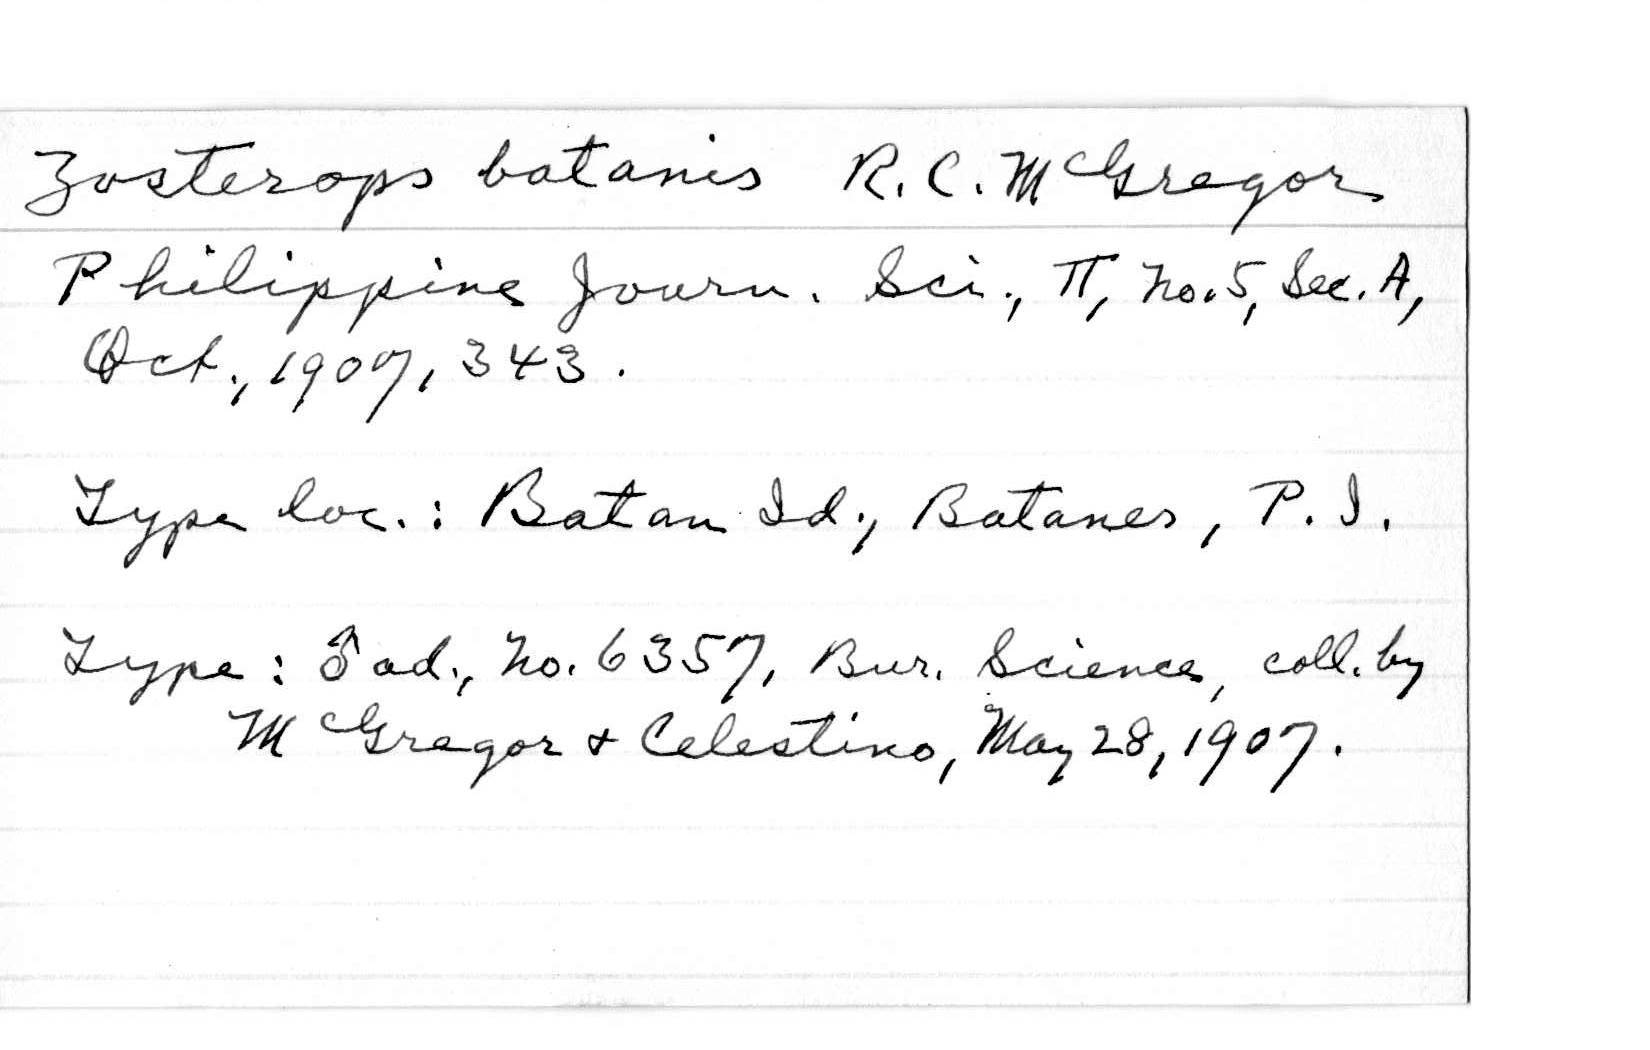 Zosterops batanis R. C. McGregor
Philippine Journ. Sci., II, no. 5, Sec. A,
Oct., 1907, 343.
Type loc.: Batan Id., Batanes, P. I.
Type: ♂ ad., no. 6357, Bur. Science, coll. by
McGregor & Celestino, May 28, 1907.